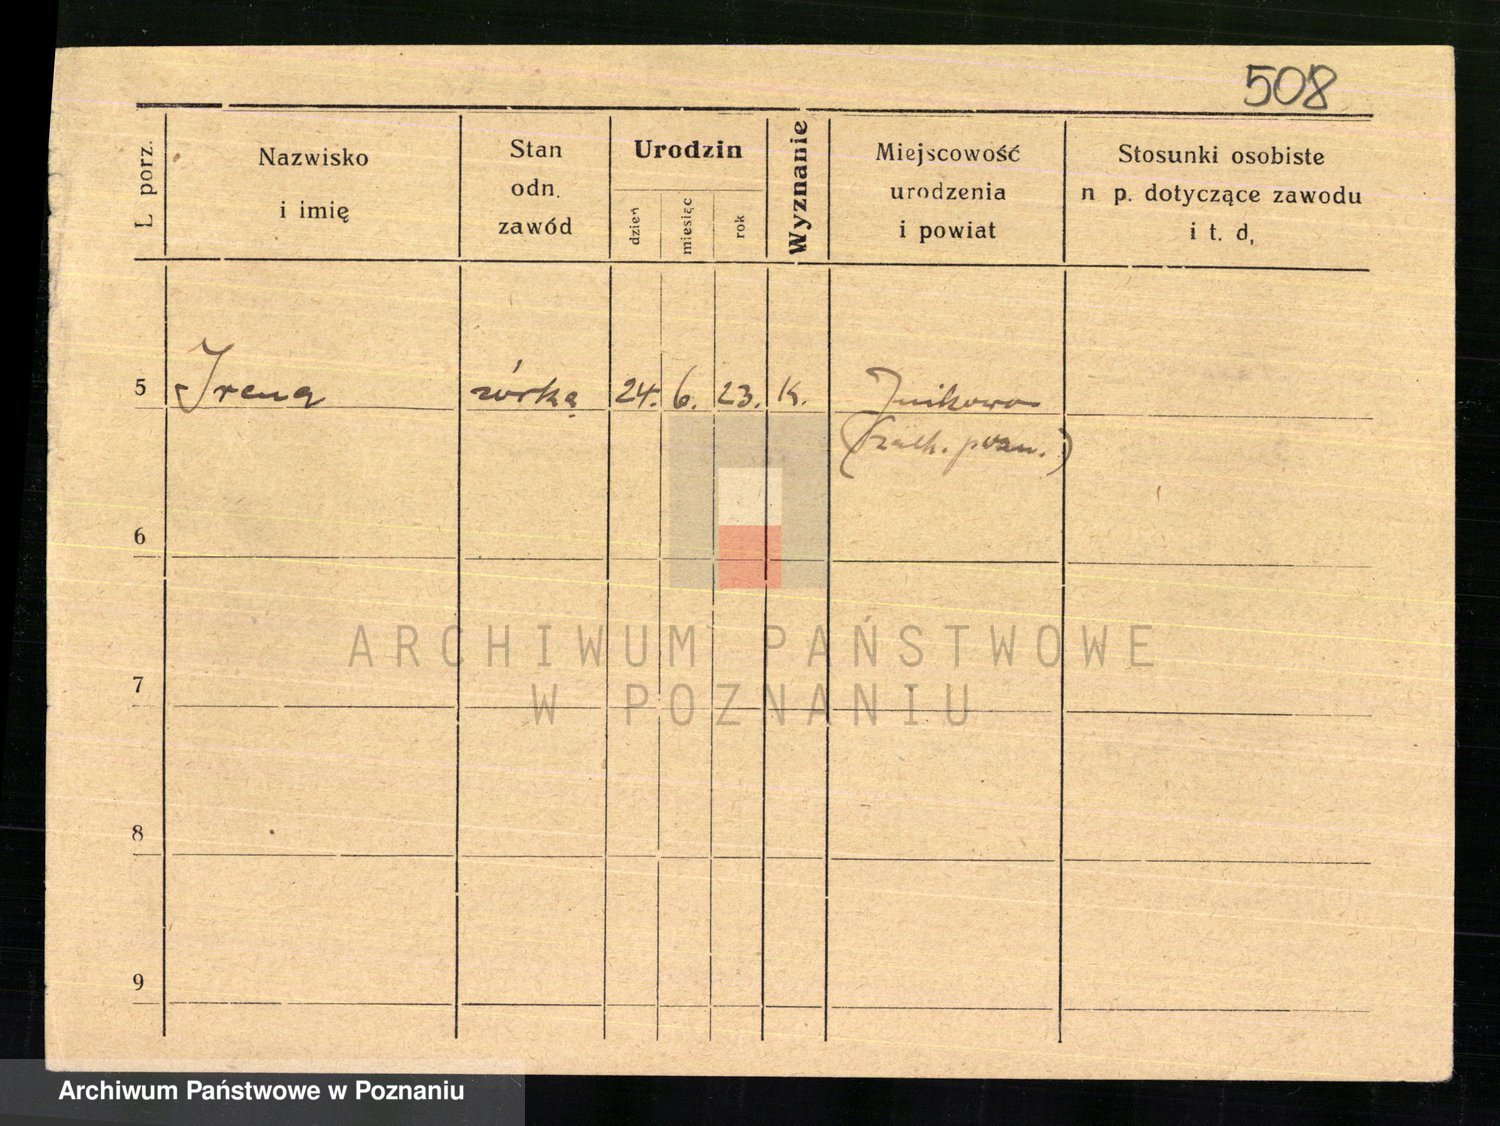 508
L porz.
Nazwisko
i imię
Stan
odn.
zawód
Urodzin
dzień
miesiąc
rok
Wyznanie
Miejscowość
urodzenia
i powiat
Stosunki osobiste
n p. dotyczące zawodu
i t. d,
5 Irena córka 24. 6. 23. K. Junikowo
(zach. pozn.)
6
7
8
9
ARCHIWUM PAŃSTWOWE
W POZNANIU
Archiwum Państwowe w Poznaniu